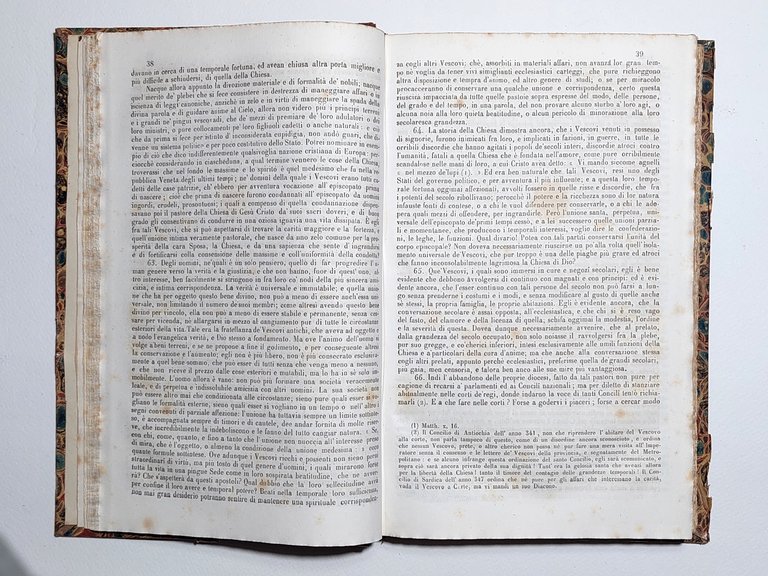 38
davano in cerca di una temporale fortuna, ed avean chiusa altra porta migliore e
più difficile a schiudersi, di quella della Chiesa.
Nacque allora appunto la direzione materiale e di formalità de' nobili, nacque
quel merito de' plebei che si fece consistere in destrezza di maneggiare affari e in
iscienza di leggi canoniche, anziché in zelo e in virtù di maneggiare la spada della
divina parola e di guidare anime al Cielo, allora non videro più i principi terreni
e i grandi ne' pingui vescovadi, che de' mezzi di premiare de' loro adulatori o dei
loro ministri, o pure collocamenti pe' loro figliuoli cadetti o anche naturali: e ciò
che da prima si fece per istinto d'inconsiderata cupidigia, non andò guari, che di-
venne un sistema politico e per poco costitutivo dello Stato. Potrei nominare in esem-
pio di ciò che dico indifferentemente qualsivoglia nazione cristiana di Europa; per-
ciocché considerando in ciascheduna, a qual termine vennero le cose della Chiesa,
troverassi che sel fondo le massime e lo spirito è quel medesimo che fu nella re-
pubblica Veneta degli ultimi tempi; ne' domni della quale i Vescovi erano tutti ca-
detti delle case patrizie, ch'ebbero per avventura vocazione all'episcopato prima
di nascere; come che prima di nascere furono condannati all'episcopato da uomini
ingordi, crudeli, prosontuosi; i quali a compenso di quella condannagione dispen-
savano poi il pastore della Chiesa di Gesù Cristo da' suoi sacri doveri, e di buon
grado gli consentivano di condurre in una oziosa ignavia una vita dissipata. E egli
fra tali Vescovi, che si può aspettarsi di trovare la carità maggiore e la fortezza, e
quell'unione intima veramente pastorale, che nasce da uno zelo comune per la pro-
sperità della cara Sposa, la Chiesa, e da una sapienza che sente d'ingrandirsi
e di fortificarsi colla connessione delle massime e coll'uniformità della condotta?
63. Degli uomini, ne' quali è un solo pensiero, quello di far progredire l'u-
man genere verso la verità e la giustizia, e che non hanno, fuor di quest' uno, al-
tro interesse, ben facilmente si stringono in fra loro co' nodi della più sincera ami-
cizia, e intima corrispondenza. La verità è universale e immutabile; e quella unione
che ha per oggetto questo bene divino, non può a meno di essere anch'essa uni-
versale, non limitando il numero de' suoi membri; come altresì avendo questo bene
divino per vincolo, ella non può a meno di essere stabile e permanente, senza ces-
sare per vicenda, né allargarsi né meno al cangiamento pur di tutte le circostanze
esteriori della vita. Tale era la fratellanza de' Vescovi antichi, che aveva ad oggetto e
a nodo l'evangelica verità, e Dio stesso a fondamento. Ma ove l'animo dell'uomo si
volge a beni terreni, e se ne forma lo scopo e il pensiero, e per conseguente altresì
la conservazione e l'aumento; egli non è più libero, non è più consecrato esclusiva-
mente a quel bene sommo, che può esser di tutti senza che venga meno a nessuno,
e che non riceve il prezzo dalle cose esteriori e mutabili, ma lo ha in sé solo im-
mutabilmente. L'uomo allora è vano: non può più formare una società veracemente
leale, e di perpetua e indissolubile amicizia con altri uomini. La sua società non
è mai che accomodazione alle circostanze; sieno pur quali esser si vogliano
le formalità esterne, sieno quali esser si vogliono in un tempo o nell'altro i
segni convenuti di parziale affezione: l'unione ha tuttavia sempre un limite sottinteso,
è accompagnata sempre di timori e di cautele, dee andar fornita di molte riser-
ve, che increbbilmente la indeboliscono e le fanno del tutto cangiar natura. « Se,
con chi, come, quanto, e fino a tanto che l'unione non nuoccia all'interesse preso
di mira, ovvero, o altrimenti o meglio la condizione della medesima »: ecco
queste formole sottintese. Ove dunque i Vescovi ricchi e possenti non sieno uomini
straordinari di virtù, ma pur tosto di quel genere d'uomini, i quali mirarono forse
tutta la vita in una pingue Sede come in loro sospirata beatitudine, che ne avver-
rà? Che s'aspetterà da questi apostoli? Qual dubbio che la loro sollecitudine avrà
per confine il loro avere e temporal potere? Beati nella temporale loro sufficienza,
non mai gran desiderio potranno sentire di mantenere una spirituale corrisponden-
39
za cogli altri Vescovi; chè, assorbiti in materiali affari, non avanzà lor gran tem-
po nè voglia da tener vivi simiglianti ecclesiastici carteggi, che pure richieggono
altra disposizione e tempra d'animo, ed altro genere di studi; o se per miracolo
procacceranno di conservare una qualche unione e corrispondenza, certo questa
riuscirà impacciata da tutte quelle pastoie sopra espresse del modo, delle persone,
del grado e del tempo, in una parola, del non provare alcuno storbo a loro agi, o
alcuna noia alla loro quieta beatitudine, o alcun pericolo di minorazione alla loro
secolaresca grandezza.
64. La storia della Chiesa dimostra ancora, che i Vescovi venuti in possesso
di signorie, furono immicati fra loro, e implicati in fazioni, in guerre, in tutte le
orribili discordie che hanno agitati i popoli de' secoli interi, discordie atroci contro
l'umanità, fatali a quella Chiesa che è tutta affezione, come pure orribilmente
scandalose nelle mani di loro, a cui Cristo avea detto: « Vi mando siccome agnelli
« nel mezzo de' lupi (1). » Ed era ben naturale che tali Vescovi, resi uno degli
Stati del governo politico, e per avventura il più influente; e a quanta la loro tem-
porale fortuna oggimai affezionati, avvolti fossero in quelle risse e discordie, che fra
i potenti del secolo ribollivano; perchè il potere e la ricchezza sono di lor natura
infauste fonti di contese, o a chi le vuol difendere per conservarsi, o a chi le ado-
pera quali mezzi d'offendere, per ingrandirsi. Però l'unione santa, perpetua, uni-
versale dell'episcopato de' primi tempi cessò, e a lei successero quelle unioni parzia-
li e momentanee, che producono i temporali interessi, voglio dire le confederazio-
ni, le leghe, le funzioni. Qual divario! Potea con tali partiti conservarsi l'unità del
corpo episcopale? Non doveva necessariamente riuscirne un po alla volta quell'isola-
mento universale de' Vescovi, che può contarsi pure per una delle piaghe più grave ed atroci
che fanno inconsolabilmente lagrimosa la Chiesa di Dio?
65. Que' Vescovi, i quali sono immersi in cure e negozi secolari, egli è bene
evidente che debbono avvolgersi di continuo con magnati e con principi: ed è evi-
dente ancora, che l'esser continuo con tali persone del secolo non può farsi a lun-
go senza prenderne i costumi e i modi, e senza modificare al gusto di quelle anche
se stessi, la propria famiglia, le proprie abitazioni. Egli è evidente ancora, che la
conversazione secolare è assai opposta, all'ecclesiastica, e che chi si è reso vago
del fasto, del clamore e della licenza di quella, schifa oggimai la modestia, l'ordine
e la severità di questa. Dovea dunque necessariamente avvenire, che al prelato,
dalla grandezza del secolo occupato, non solo noiasse il ravvolgersi fra la plebe,
per suo minor agio, e co' chierici inferiori, intesi esclusivamente alle umili funzioni della
Chiesa e a' particolari della cura d'anime; ma che anche alla conversazione stessa
degli altri prelati, appunto perchè ecclesiastici, preferisse quella de' grandi secolari,
più gaia, men censoria, e talora ben anco alle sue mire più vantaggiosa.
66. Indi l'abbandono delle proprie diocesi, fatto da tali pastori non pure per
cagione di recarsi a' parlamenti ed ai Concilî nazionali; ma per diletto di stanziare
abitualmente nelle corti de' regi, donde indarno la voce di tanti Concilî tentò richia-
marli (2). E a che fare nelle corti? Forse a godervi i piaceri; forse a cercar modo
(1) Matth. x, 16.
(2) Il Concilio di Antiochia dell' anno 341, che non che riprendere l'abitare del Vescovo
alla corte, non parla tampoco di questo, come di un disordine ancora sconosciuto, e ordina
che nessun Vescovo, prete, o altro chierico non so nemmen se può fare una mera visita all' Im-
peratore senza il consenso e le lettere de' Vescovi della provincia, e segnatamente del Metro-
politano: e se alcuno infrange questa ordinazione del santo Concilio, egli sarà scomunicato, e
sopra ciò sarà ancora privato della sua dignità! Tant'era la gelosia santa che aveasi allora
per la libertà della Chiesa! tanto il timore del contagio delle grandezze temporali! Il Con-
cilio di Sardica dell'anno 347 ordina che nè pur per gli affari che interessano la carità,
vada il Vescovo a Corte, ma vi mandi un suo Diacono.